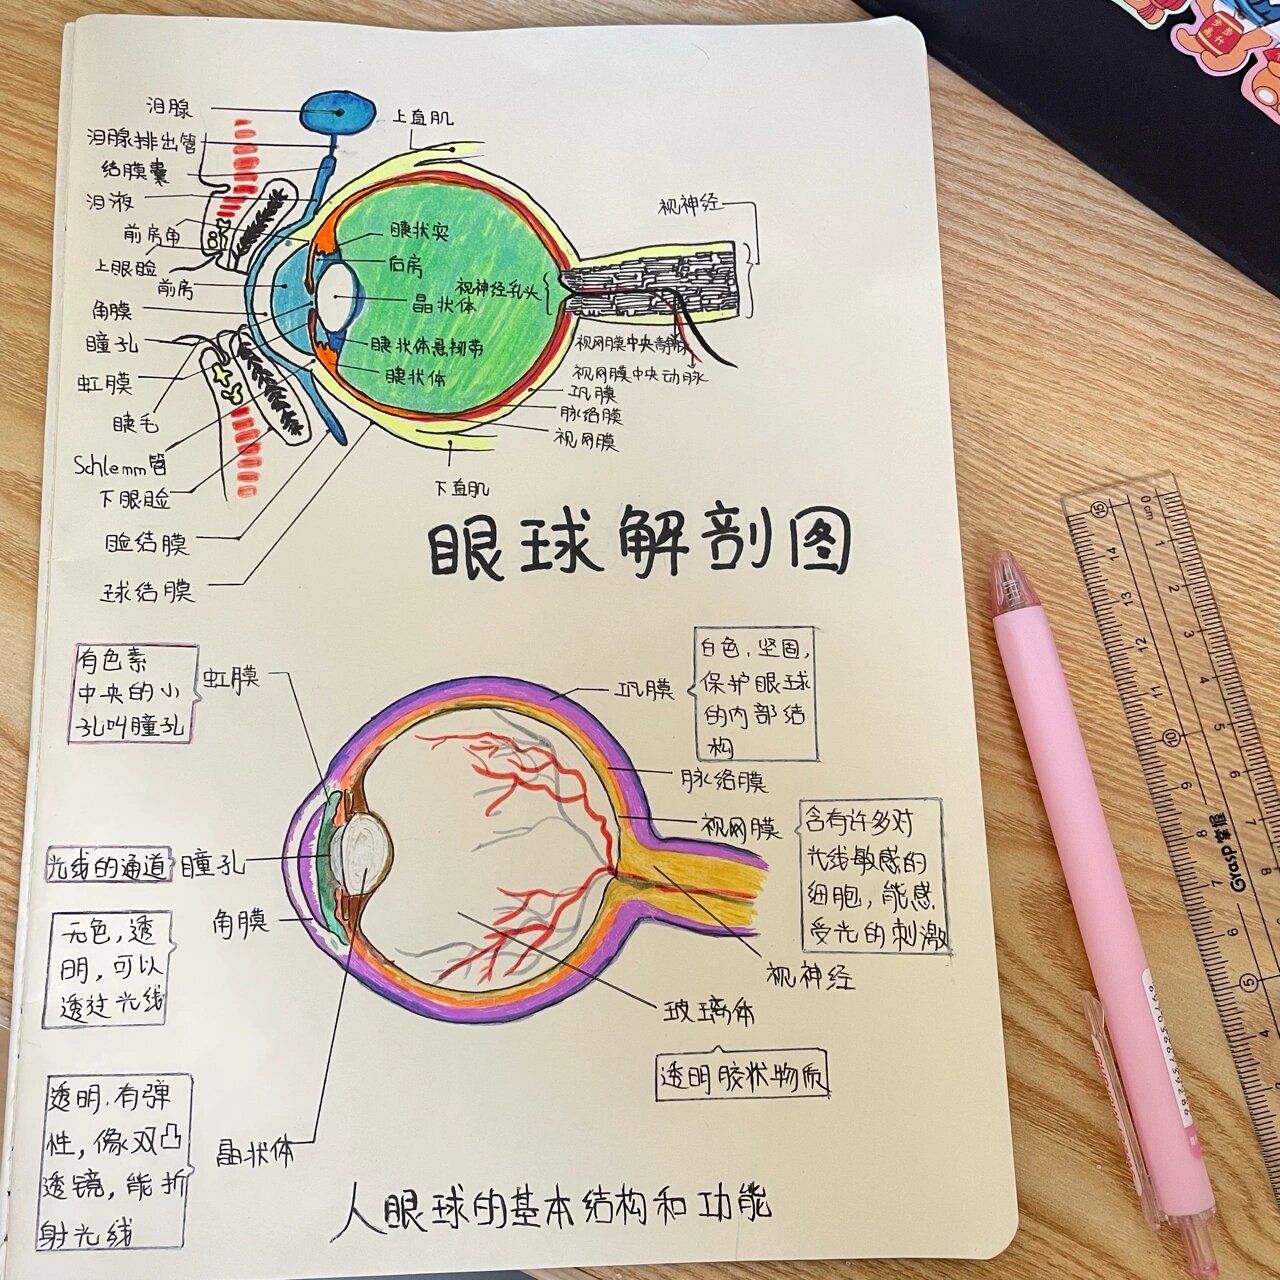 步步
高升
泪腺
泪腺排出管
结膜囊
泪液
前房角
上眼睑
前房
角膜
瞳孔
虹膜
睫毛
Schlemm管
下眼睑
睑结膜
球结膜
上直肌
视神经
睫状突
后房
视神经乳头
晶状体
睫状体悬韧带
睫状体
视网膜中央静脉
视网膜中央动脉
巩膜
脉络膜
视网膜
下直肌
眼球解剖图
有色素
中央的小
孔叫瞳孔
虹膜
巩膜
白色,坚固,
保护眼球
的内部结
构
脉络膜
视网膜
含有许多对
光线敏感的
细胞,能感
受光的刺激
光线的通道
瞳孔
角膜
无色,透
明,可以
透过光线
视神经
玻璃体
透明胶状物质
透明,有弹
性,像双凸
透镜,能折
射光线
晶状体
人眼球的基本结构和功能
Grasp掌握